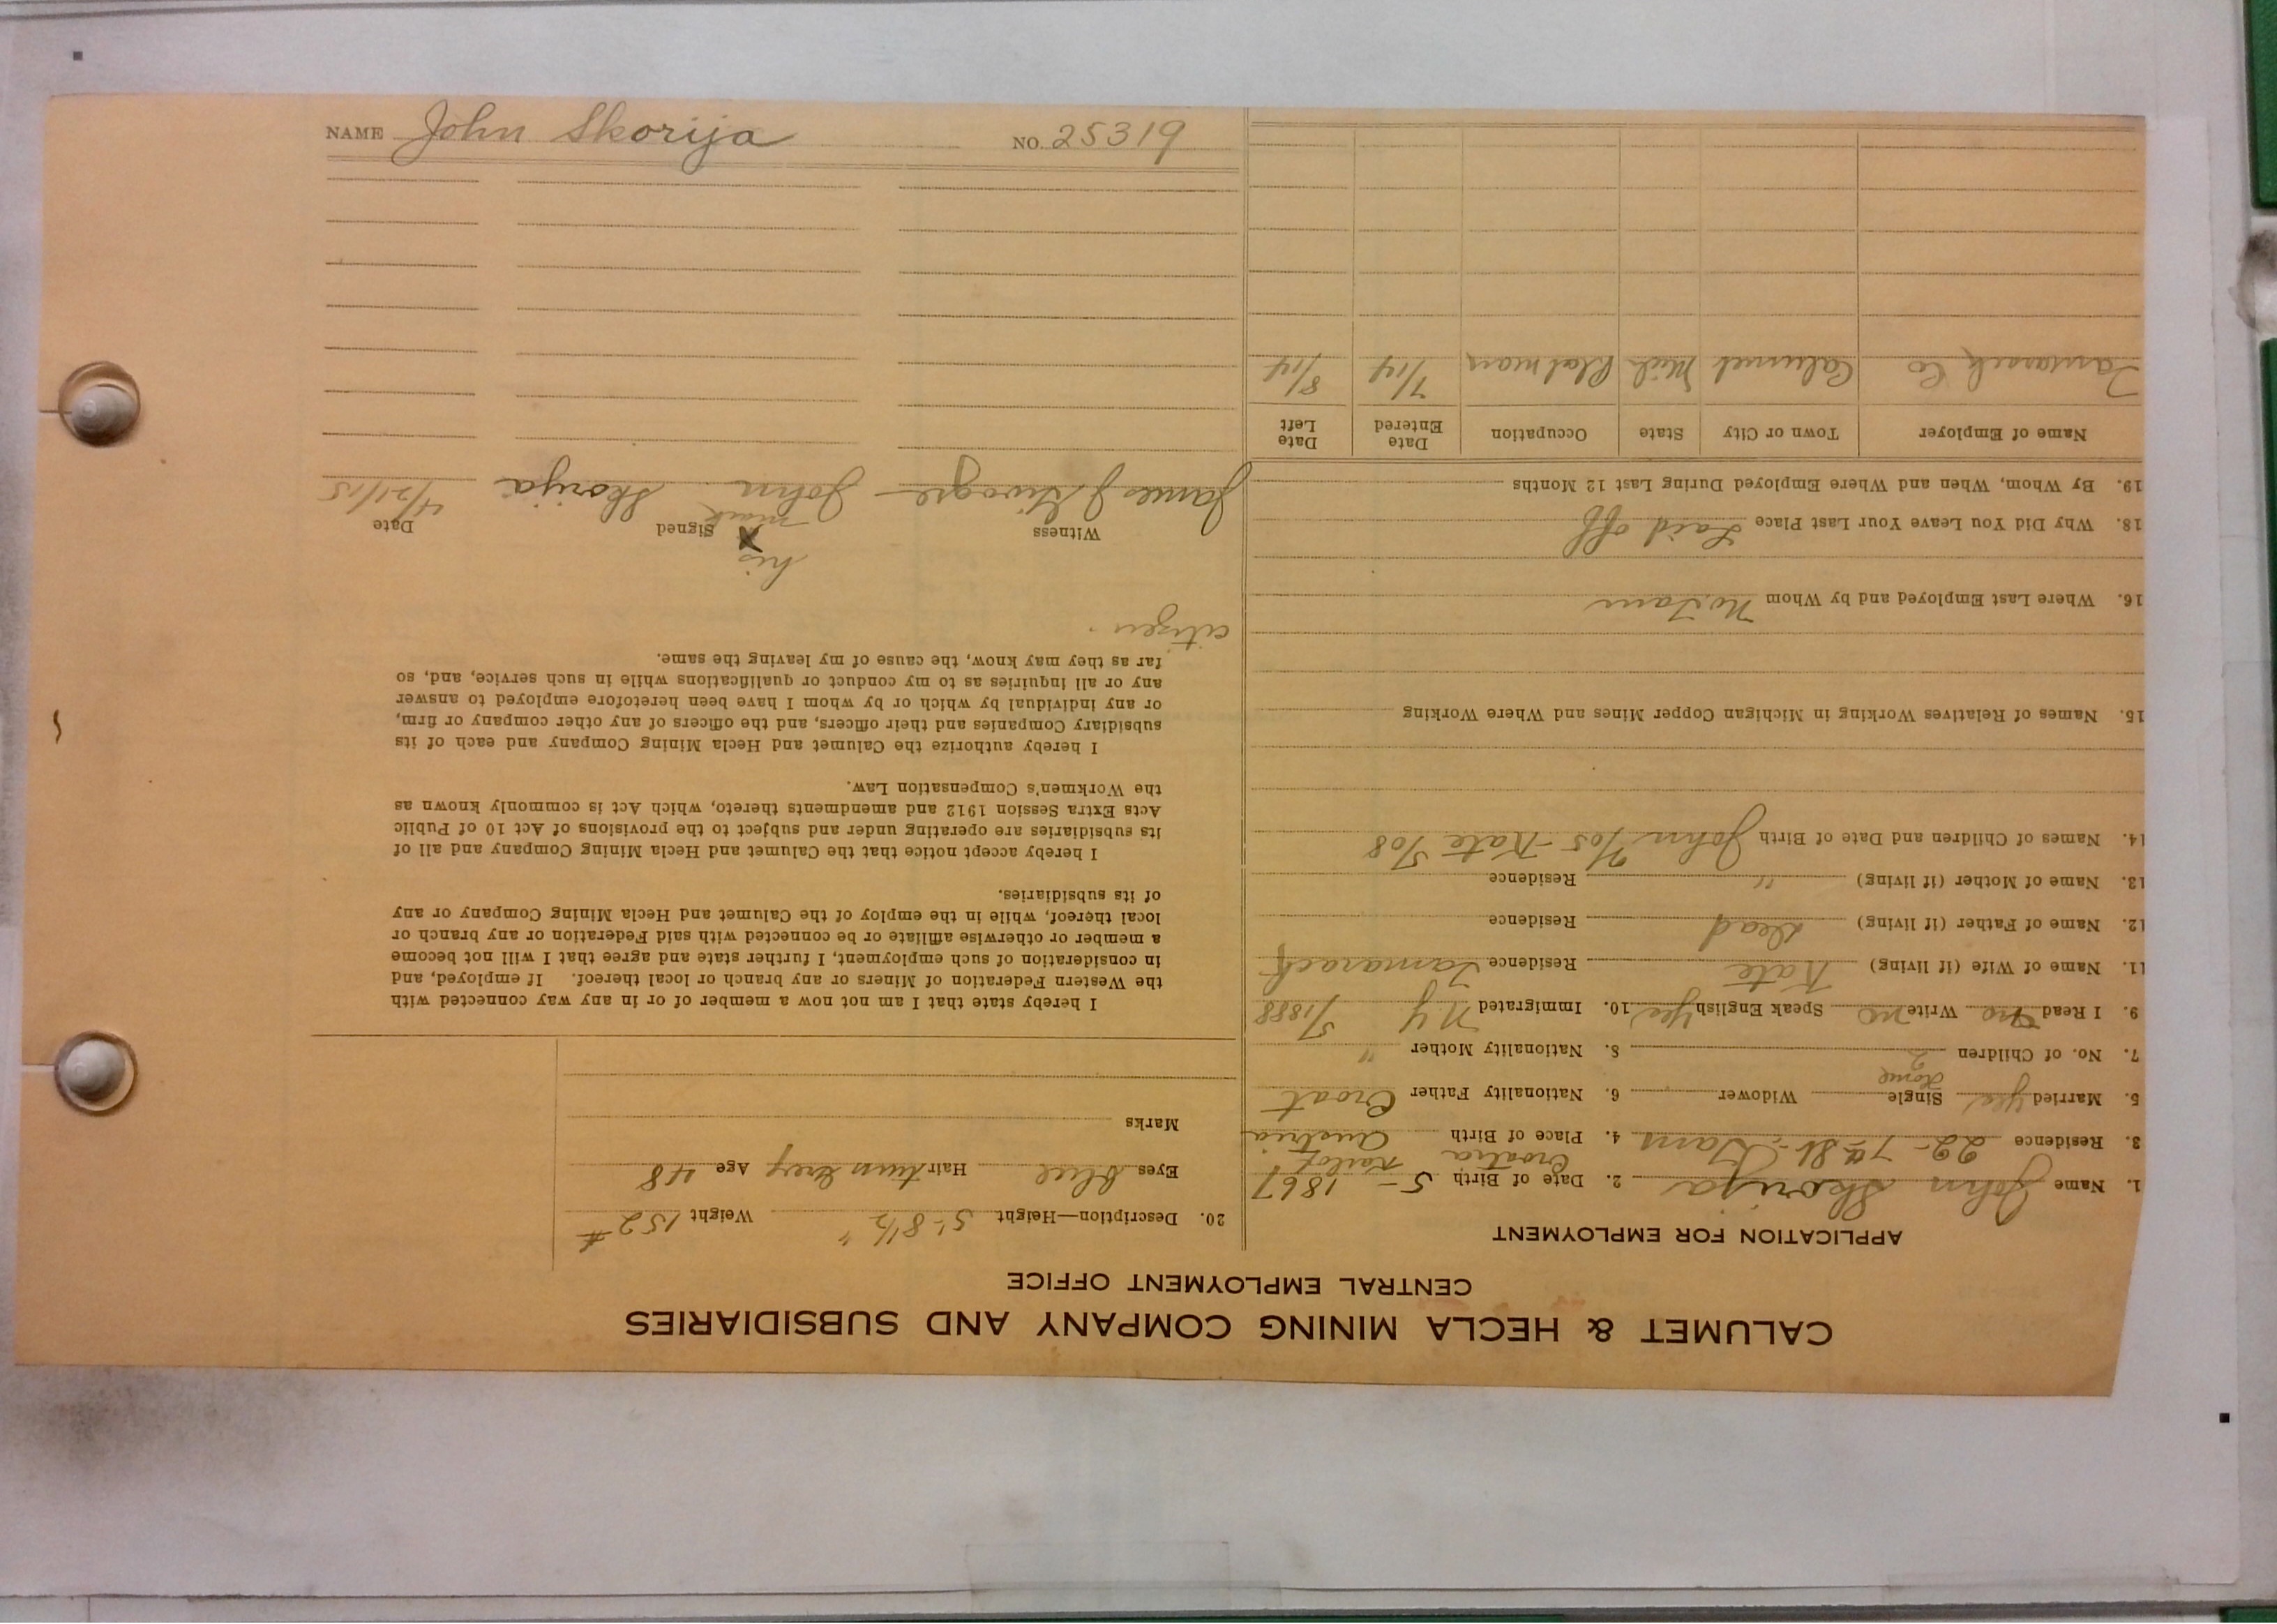 NAME John Skorija NO. 25319
CALUMET & HECLA MINING COMPANY AND SUBSIDIARIES
CENTRAL EMPLOYMENT OFFICE
APPLICATION FOR EMPLOYMENT
1. Name John Skorija 2. Date of Birth 5- 1867
Croatia
3. Residence 22-7th St- Tam 4. Place of Birth Austria
5. Married yes Single Widower 6. Nationality Father Croat
Home
7. No. of Children 2 8. Nationality Mother "
9. I Read no Write no Speak English yes 10. Immigrated N.Y 5/1888
11. Name of Wife (if living) Kate Residence Tamarack
12. Name of Father (if living) Dead Residence
13. Name of Mother (if living) " Residence
14. Names of Children and Date of Birth John 9/05 - Kate 5/08
15. Names of Relatives Working in Michigan Copper Mines and Where Working
16. Where Last Employed and by Whom No. Tam
18. Why Did You Leave Your Last Place Laid off
19. By Whom, When and Where Employed During Last 12 Months
Name of Employer Town or City State Occupation Date Entered Date Left
Tamarack Co Calumet Mich 7/14 8/14
20. Description—Height 5'-8 1/2" Weight 152#
Eyes blue Hair turn grey Age 48
Marks
I hereby state that I am not now a member of or in any way connected with
the Western Federation of Miners or any branch or local thereof. If employed, and
in consideration of such employment, I further state and agree that I will not become
a member or otherwise affiliate or be connected with said Federation or any branch or
local thereof, while in the employ of the Calumet and Hecla Mining Company or any
of its subsidiaries.
I hereby accept notice that the Calumet and Hecla Mining Company and all of
its subsidiaries are operating under and subject to the provisions of Act 10 of Public
Acts Extra Session 1912 and amendments thereto, which Act is commonly known as
the Workmen's Compensation Law.
I hereby authorize the Calumet and Hecla Mining Company and each of its
subsidiary Companies and their officers, and the officers of any other company or firm,
or any individual by which or by whom I have been heretofore employed to answer
any or all inquiries as to my conduct or qualifications while in such service, and, so
far as they may know, the cause of my leaving the same.
citizen.
his
Witness X Signed Date
mark
James J John Skorija 4/21/15